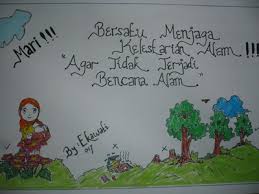 Mari!!!
Bersatu Menjaga
Kelestarian Alam!!!
"Agar Tidak Terjadi
Bencana Alam"
By: Ekawati